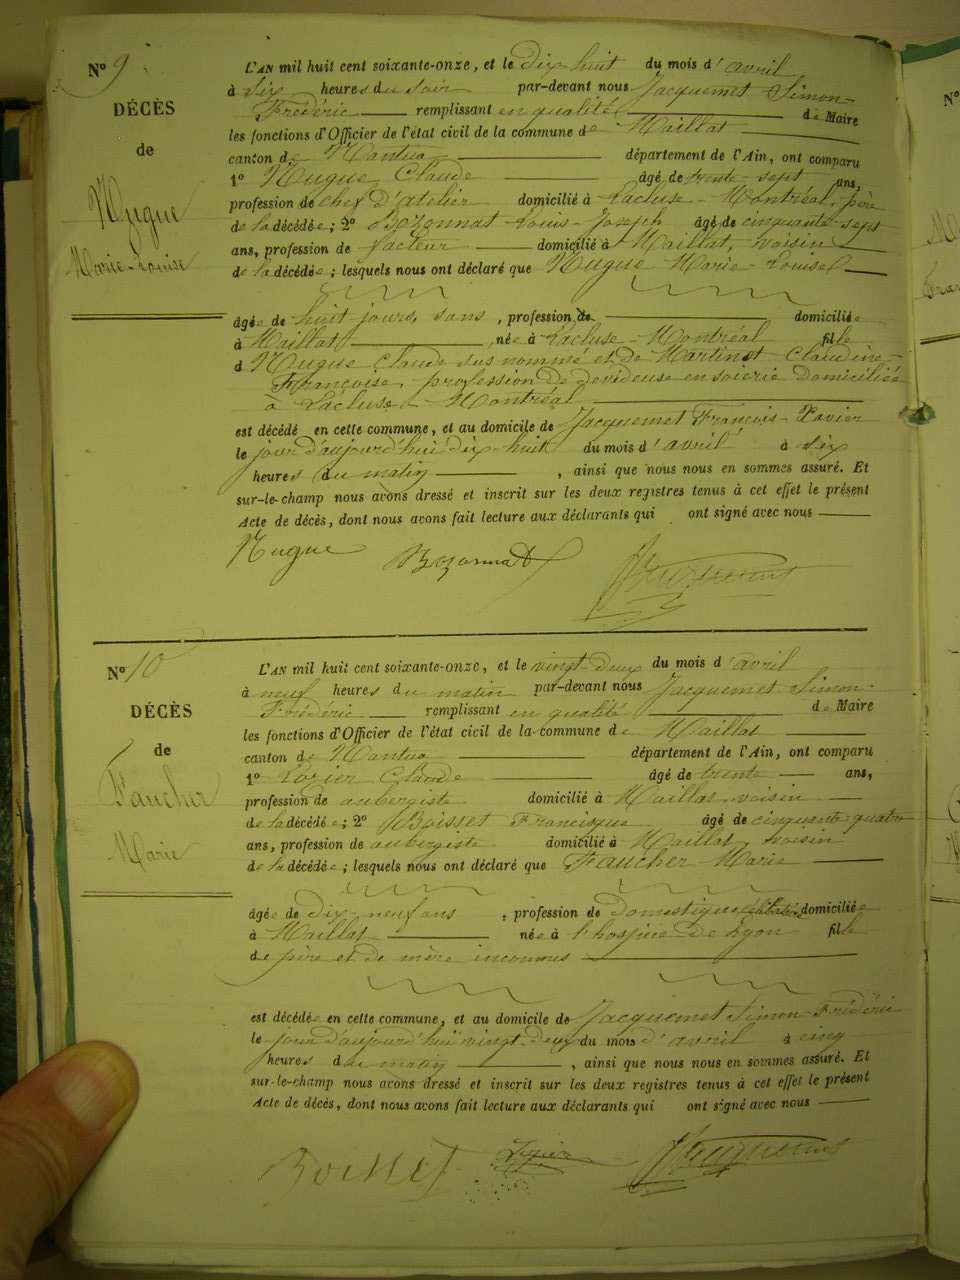 N° 9
DÉCÈS
de
Nugue
Marie-Louise
L'AN mil huit cent soixante-onze, et le dix-huit du mois d'avril
à six heures du soir par-devant nous Jacquemet Simon-
Frédéric remplissant en qualité de Maire
les fonctions d'Officier de l'état civil de la commune de Maillat
canton de Nantua département de l'Ain, ont comparu
1° Nugue Claude âgé de trente-sept ans,
profession de chef d'atelier domicilié à Lacluse-Montréal, père
de la décédée; 2° Bozonnat Louis-Joseph âgé de cinquante-sept
ans, profession de facteur domicilié à Maillat, voisin
de la décédée; lesquels nous ont déclaré que Nugue Marie-Louise
âgée de huit jours, sans, profession de domiciliée
à Maillat, née à Lacluse-Montréal fille
d Nugue Claude sus nommé et de Martinet Claudine-
Françoise, profession de dévideuse en soierie domiciliée
à Lacluse-Montréal
est décédé en cette commune, et au domicile de Jacquemet François-Xavier
le jour d'aujourd'hui dix-huit du mois d'avril à six
heures du matin, ainsi que nous nous en sommes assuré. Et
sur-le-champ nous avons dressé et inscrit sur les deux registres tenus à cet effet le présent
Acte de décès, dont nous avons fait lecture aux déclarants qui ont signé avec nous
Nugue Bozonnat
N° 10
DÉCÈS
de
Faucher
Marie
L'AN mil huit cent soixante-onze, et le vingt-deux du mois d'avril
à neuf heures du matin par-devant nous Jacquemet Simon-
Frédéric remplissant en qualité de Maire
les fonctions d'Officier de l'état civil de la commune de Maillat
canton de Nantua département de l'Ain, ont comparu
1° Claude âgé de trente ans,
profession de aubergiste domicilié à Maillat, voisin
de la décédée; 2° Boisset Francisque âgé de cinquante-quatre
ans, profession de aubergiste domicilié à Maillat, voisin
de la décédée; lesquels nous ont déclaré que Faucher Marie
âgée de dix-neuf ans, profession de domestique célibataire domiciliée
à Maillat née à l'hospice de Lyon fille
de père et de mère inconnus
est décédée en cette commune, et au domicile de Jacquemet Simon Frédéric
le jour d'aujourd'hui vingt-deux du mois d'avril à cinq
heures du matin, ainsi que nous nous en sommes assuré. Et
sur-le-champ nous avons dressé et inscrit sur les deux registres tenus à cet effet le présent
Acte de décès, dont nous avons fait lecture aux déclarants qui ont signé avec nous
Boisset
N°